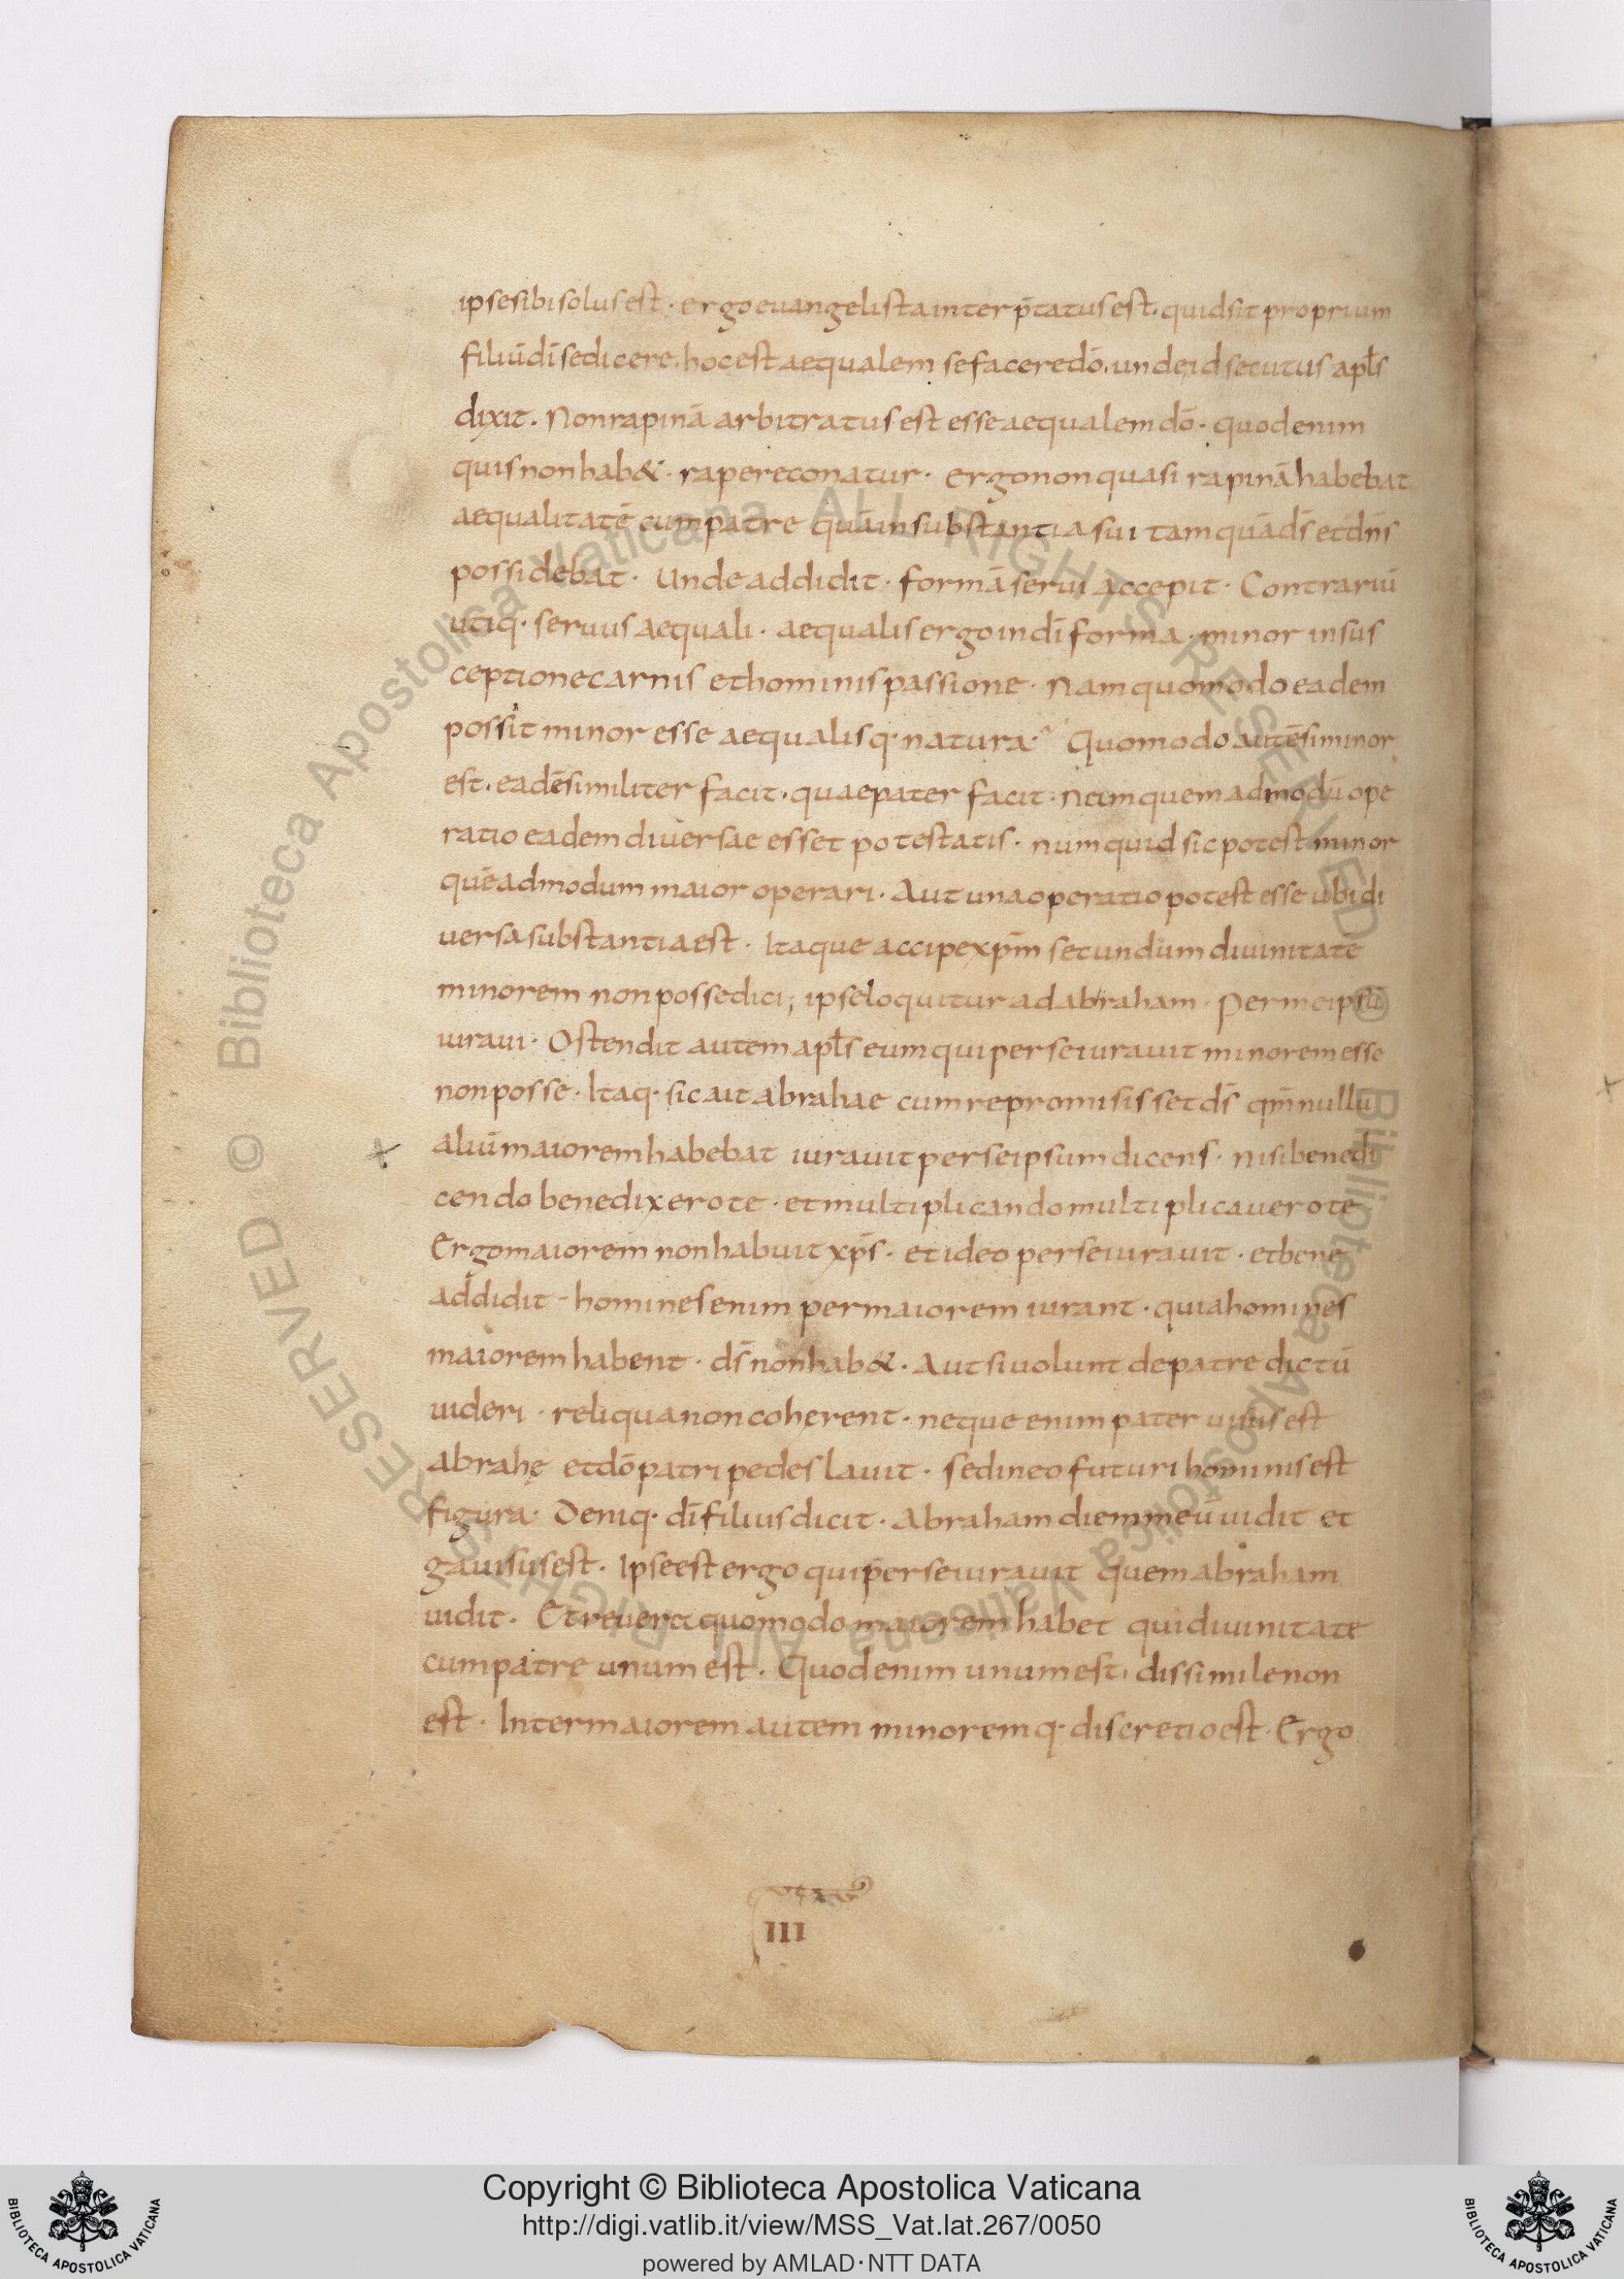 ipsesibisolusest · ergoeuangelistainterp̄tatusest. quidsit proprium
filiūdīsedicere. hocest aequalem sefaceredō. undeid secutus apl̄s
dixit . Nonrapinā arbitratus est esseaequalem dō · quodenim
quisnonhab& · rapereconatur · ergononquasi rapinā habebat
aequalitatē cumpatre quāinsubstantia sui tamquāds̄ etdn̄s
possidebat · Undeaddidit · formā serui accepit · Contrariū
utiq· seruus aequali · aequalis ergo indīforma · minor insus
ceptionecarnis ethominis passione · Namquomodo eadem
possit minor esse aequalisq· natura · Quomodo autēsiminor
est . eadēsimiliter facit . quaepater facit · Namquemadmodū ope
ratio eadem diuersae esset potestatis · numquid sicpotest minor
quēadmodum maior operari · Aut unaoperatiopotest esse ubidi
uersasubstantiaest · Itaque accipexpm̄ secundum diuinitatē
minorem nonpossedici; ipseloquitur adabraham · Permeipsū
iuraui · Ostendit autem apl̄s eumquiperseiurauit minoremesse
nonposse · Itaq· sicait abrahae cumrepromisisset ds̄ qm̄nullū
aliūmaioremhabebat iurauit perseipsumdicens · nisibenedi
cendo benedixerote · etmultiplicandomultiplicauerote
Ergomaiorem nonhabuit xps̄ · etideo perseiurauit · etbene
addidit - hominesenim permaiorem iurant · quiahomines
maioremhabent · ds̄ nonhab& . Autsiuolunt depatre dictū
uideri · reliquanoncoherent · neque enimpater uisusest
abrahę etdōpatri pedes lauit · sedineofuturihominisest
figura · Deniq· dīfiliusdicit · Abraham diemmeū uidit et
gauisusest · Ipseest ergo quiperseiurauit quemabraham
uidit . Etreuera quomodo maiorem habet quidiuinitate
cumpatre unum est . Quodenim unumest, dissimilenon
est · Intermaiorem autem minoremq· discretioest · Ergo
III
Copyright © Biblioteca Apostolica Vaticana
http://digi.vatlib.it/view/MSS_Vat.lat.267/0050
powered by AMLAD · NTT DATA
BIBLIOTECA APOSTOLICA VATICANA
BIBLIOTECA APOSTOLICA VATICANA
© Biblioteca Apostolica Vaticana ALL RIGHTS RESERVED © Biblioteca Apostolica Vaticana ALL RIGHTS RESERVED